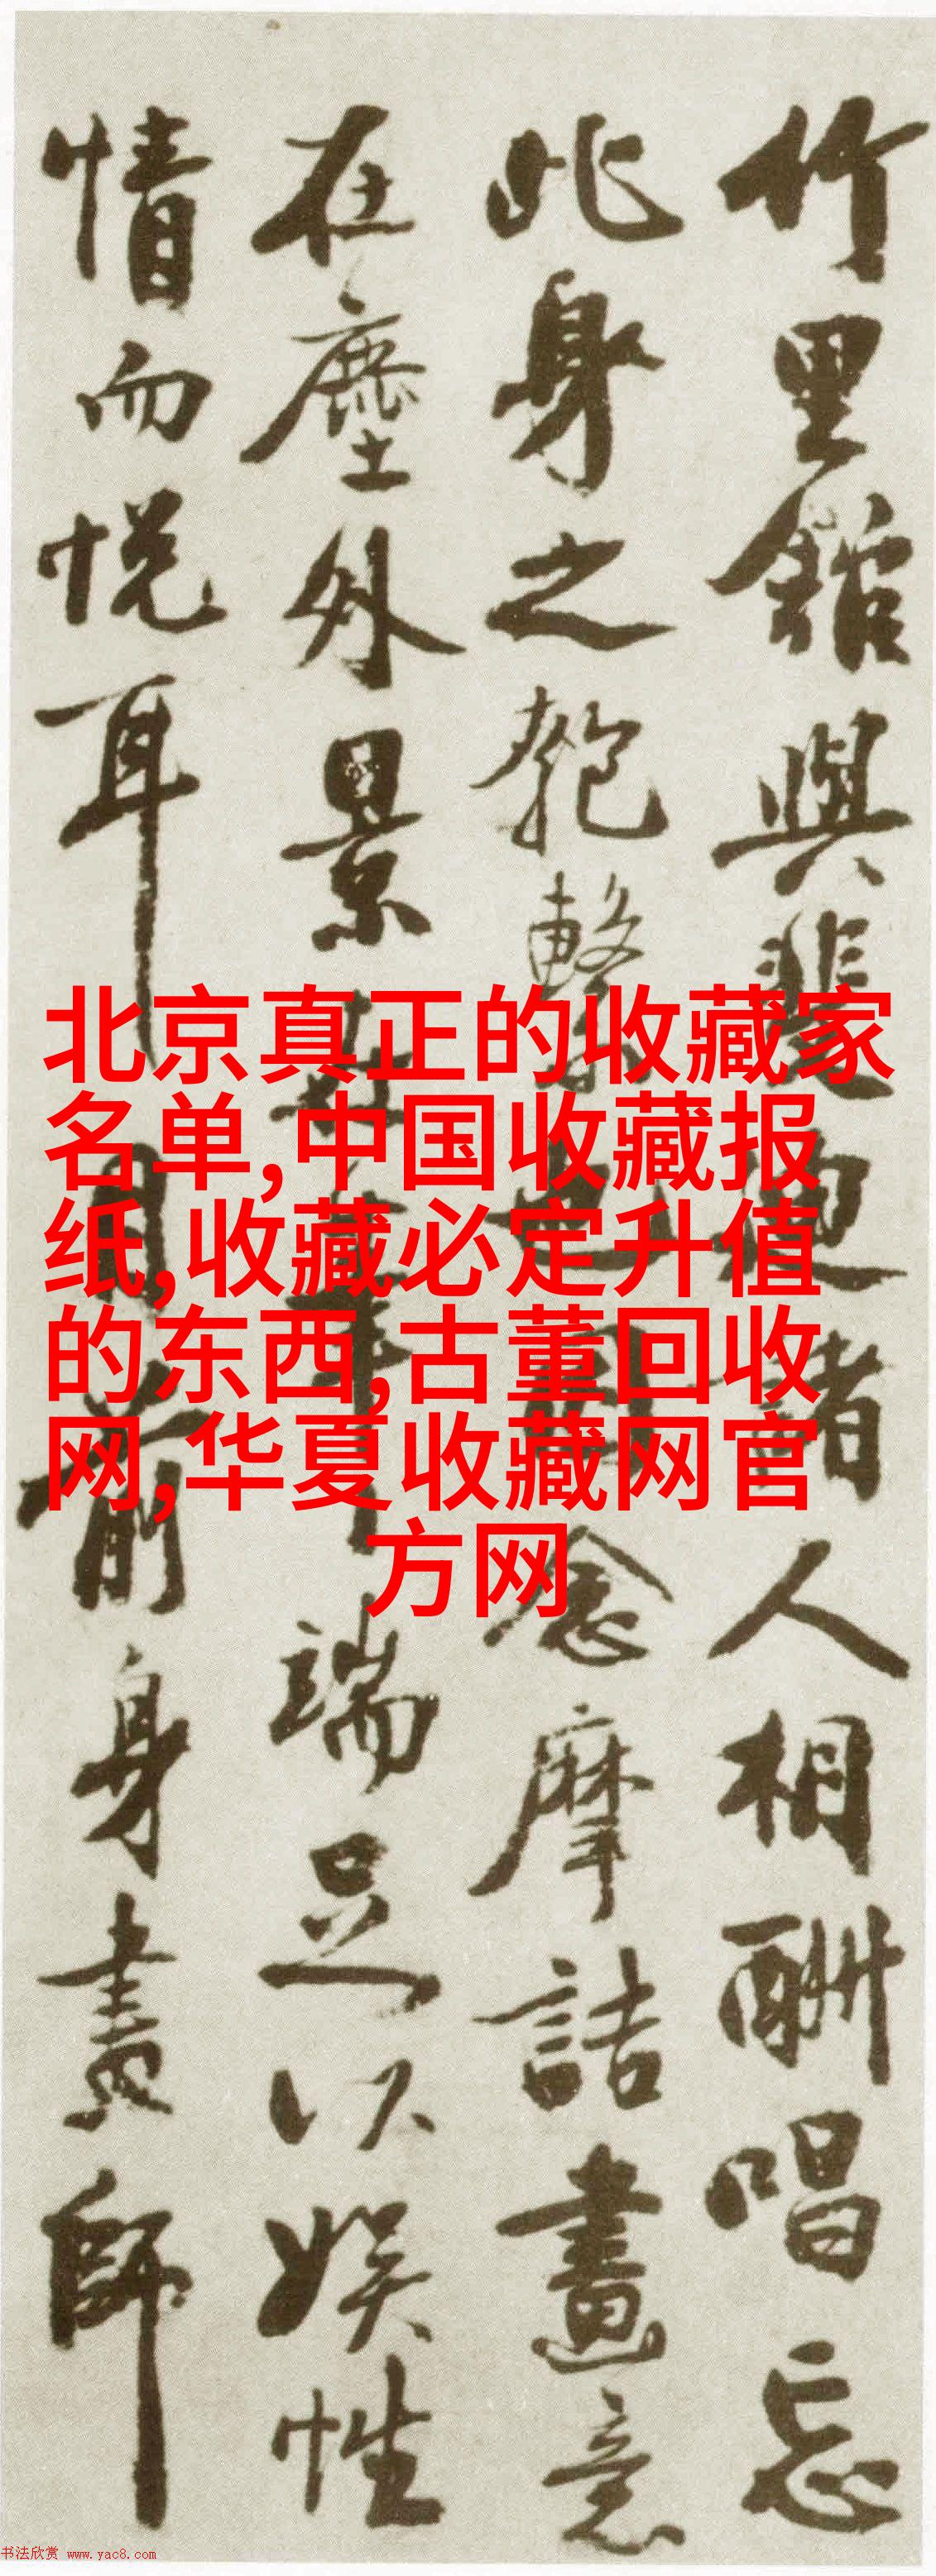 竹里館與裴迪諸人相酬唱忘
此身之匏繫也因念摩詰畫意
在塵外景
端足以娛性
情而悦耳目前身畫師
北京真正的收藏家
名单,中国收藏报
纸,收藏必定升值
的东西,古董回收
网,华夏收藏网官
方网
书法欣赏 www.yac8.com